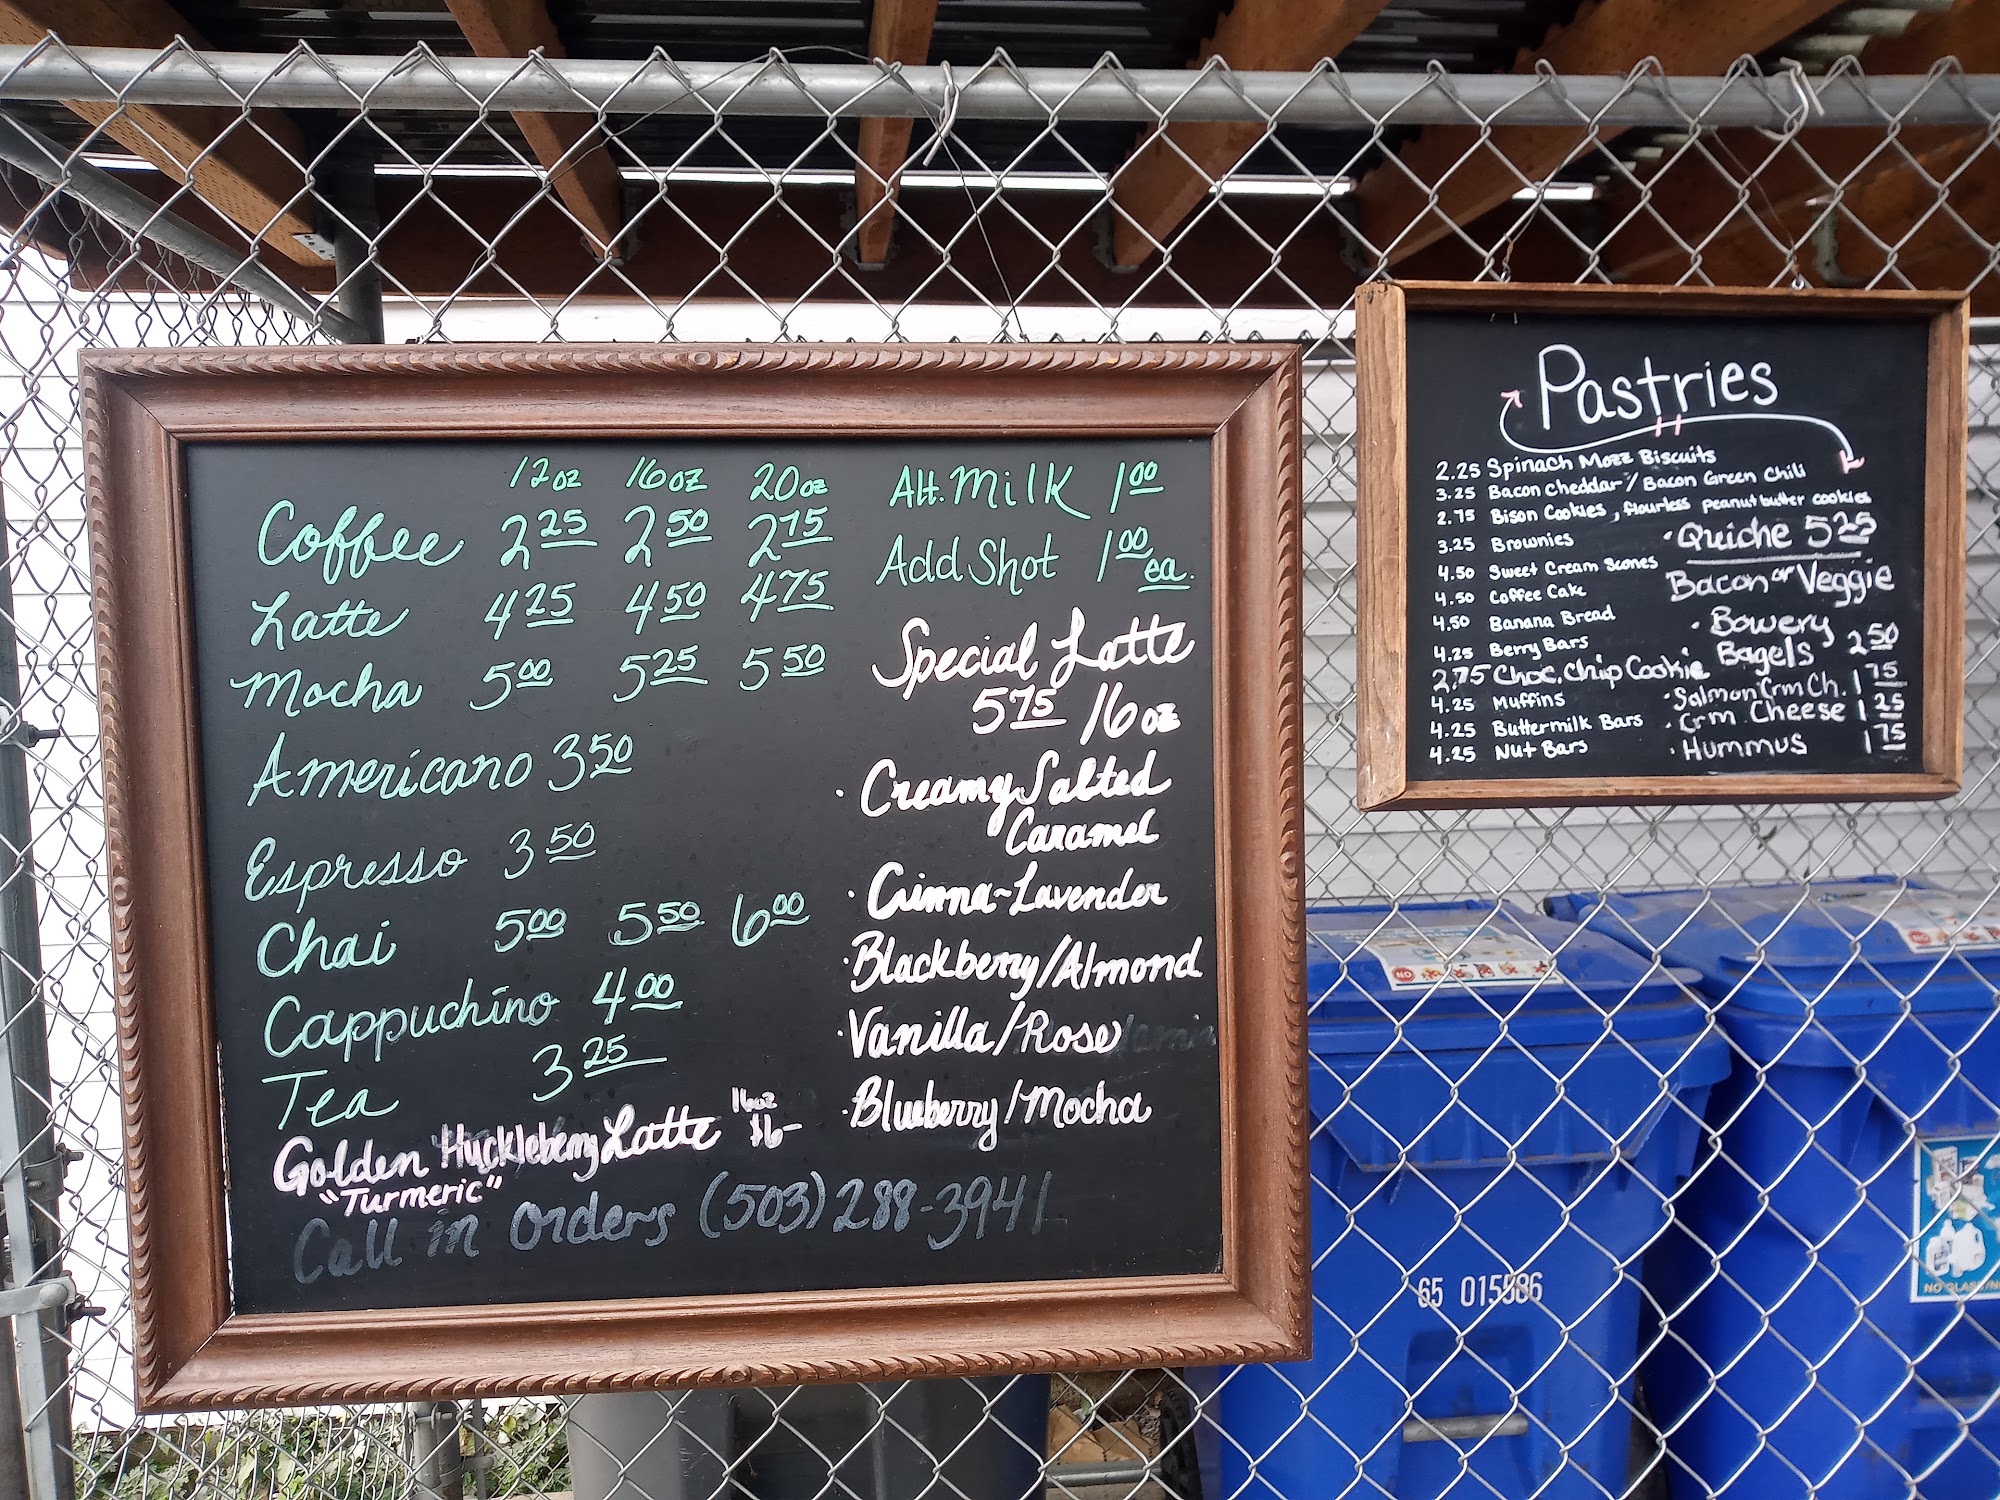 12oz 16oz 20oz
Coffee 2 25 2 50 2 75
Latte 4 25 4 50 4 75
Mocha 5 00 5 25 5 50
Americano 3 50
Espresso 3 50
Chai 5 00 5 50 6 00
Cappuchino 4 00
Tea 3 25
Golden Huckleberry Latte 16oz $6-
"Turmeric"
Call in orders (503) 288-3941
Alt. Milk 1 00
Add Shot 1 00 ea.
Special Latte
5 75 /16oz
· Creamy Salted
Caramel
· Cinna-Lavender
· Blackberry/Almond
· Vanilla/Rose
· Blueberry/Mocha
Pastries
2.25 Spinach Mozz Biscuits
3.25 Bacon Cheddar / Bacon Green Chili
2.75 Bison Cookies, flourless peanut butter cookies
3.25 Brownies
4.50 Sweet Cream Scones
4.50 Coffee Cake
4.50 Banana Bread
4.25 Berry Bars
2.75 Choc. Chip Cookie
4.25 Muffins
4.25 Buttermilk Bars
4.25 Nut Bars
· Quiche 5 25
Bacon or Veggie
· Bowery
Bagels 2 50
· Salmon Crm Ch. 1 75
· Crm Cheese 1 25
· Hummus 1 75
NO
65 015586